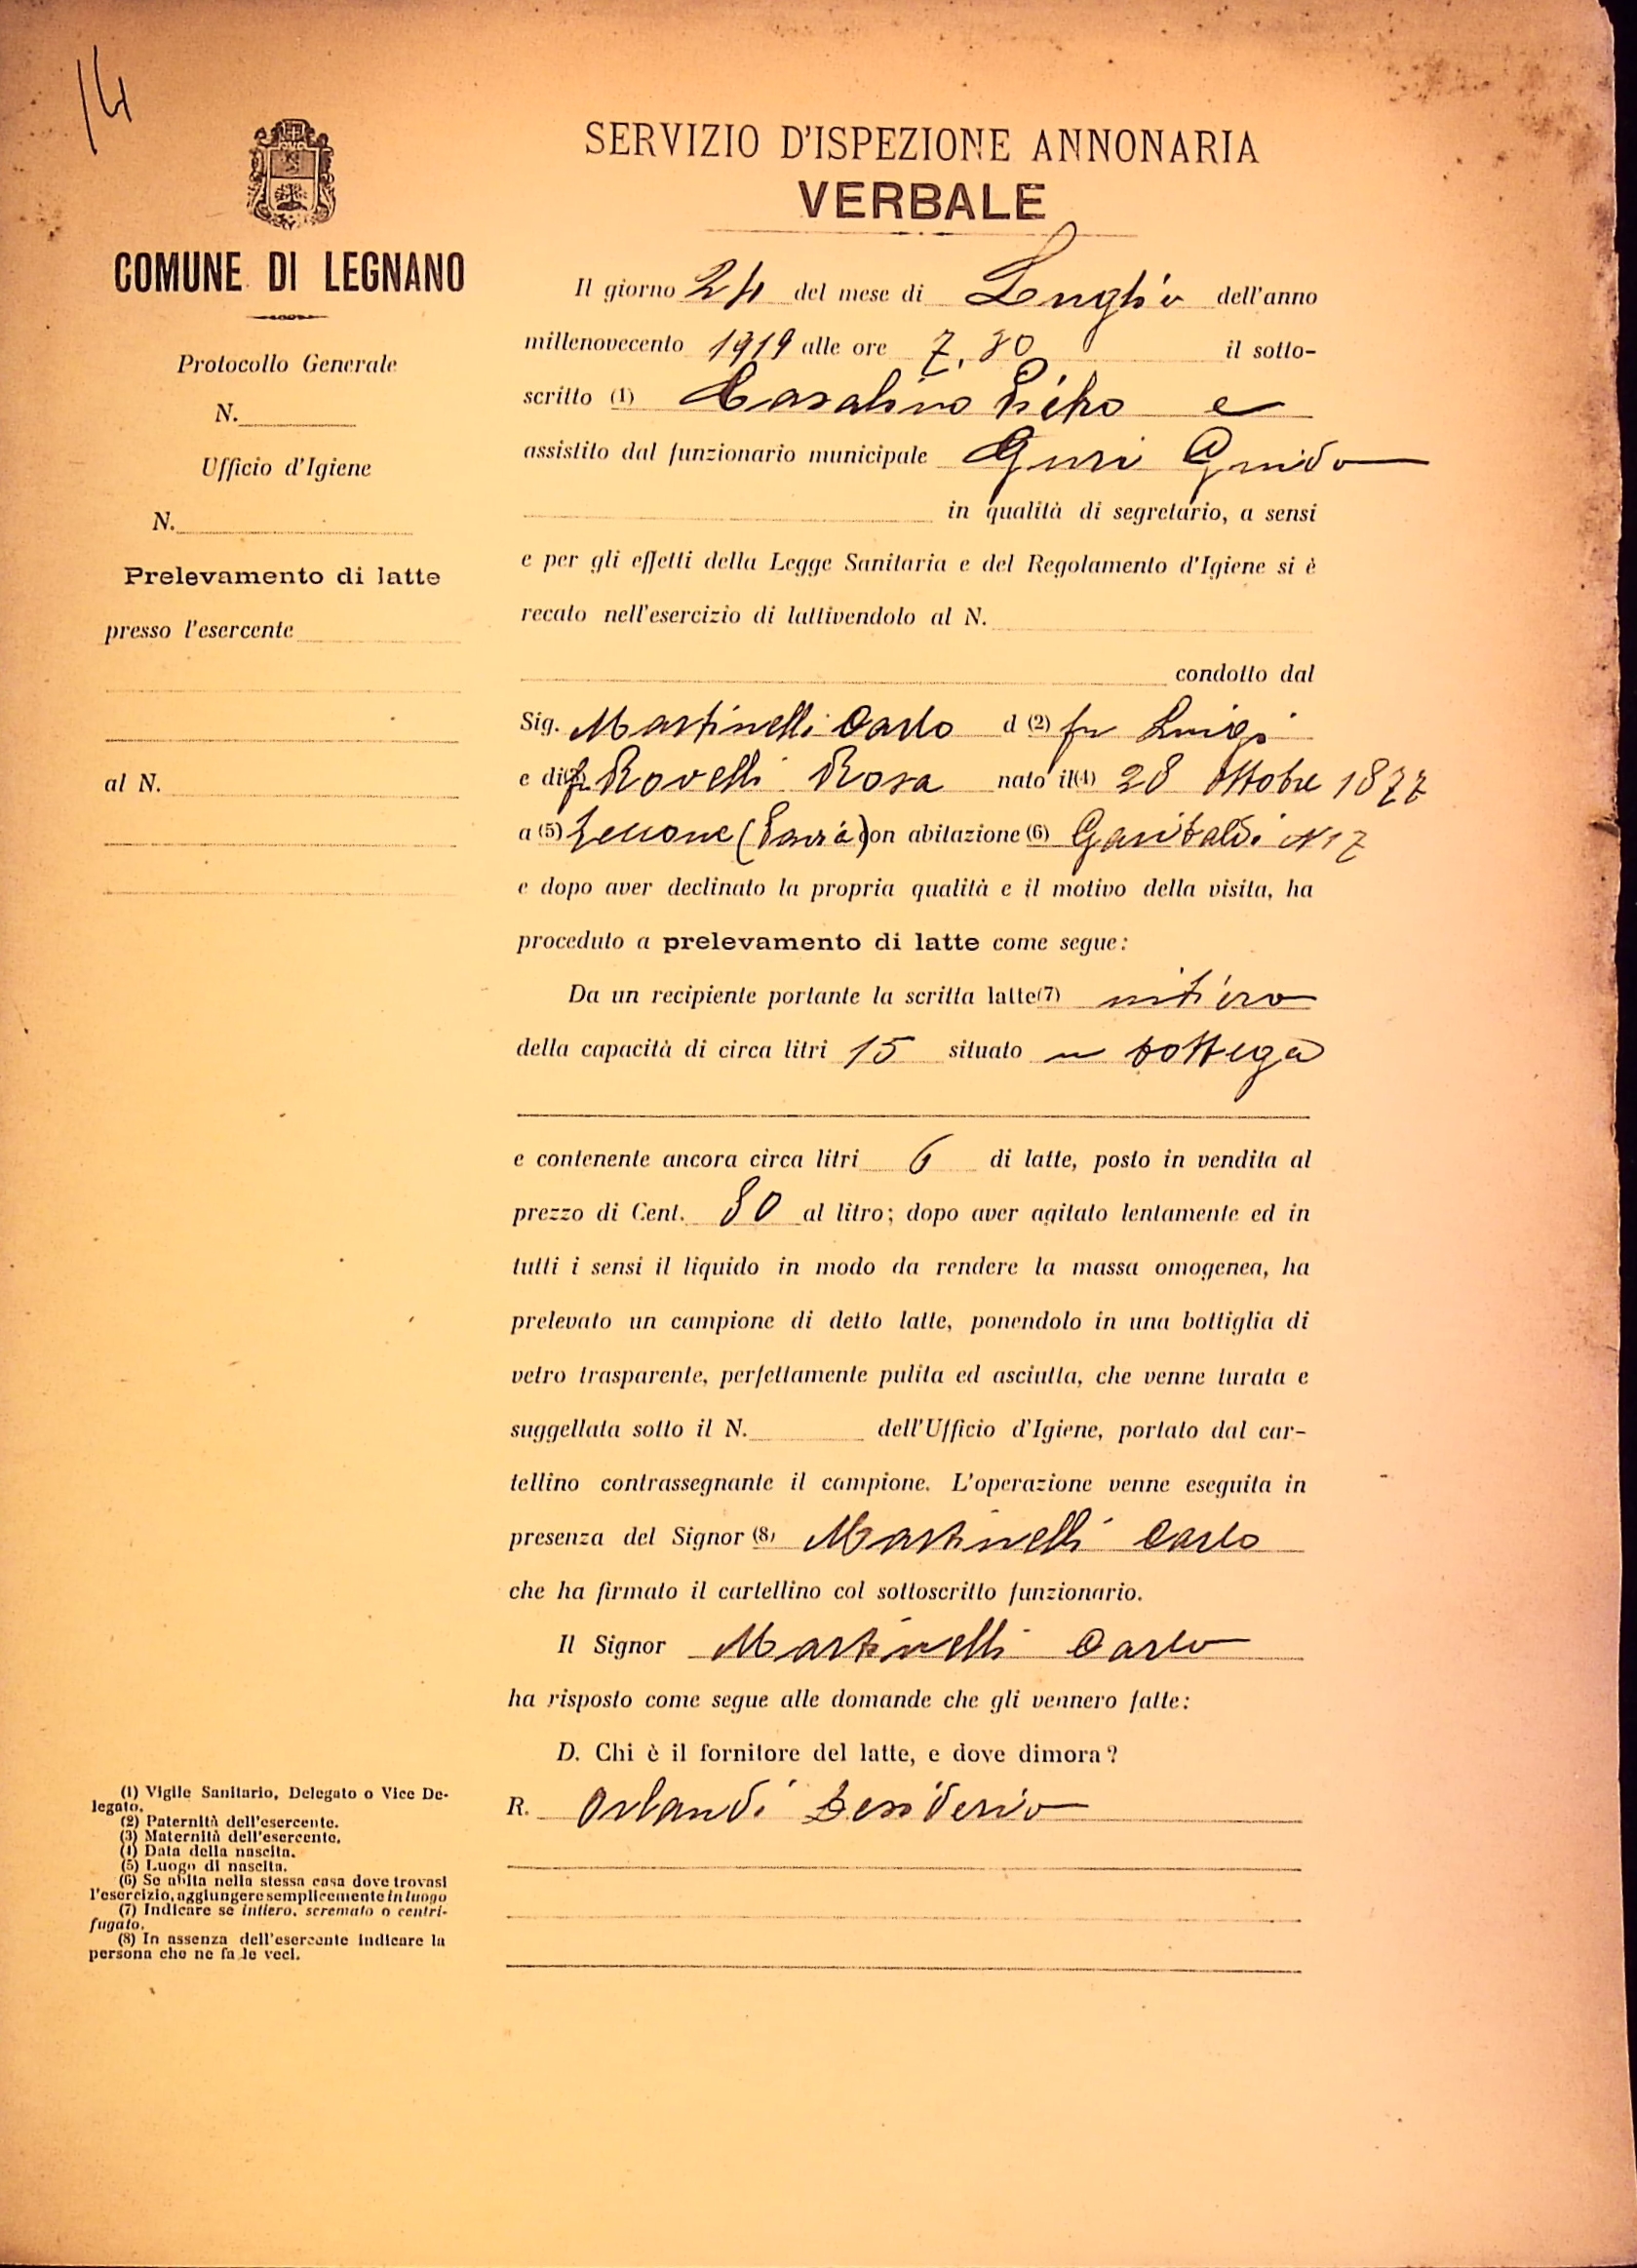 14
COMUNE DI LEGNANO
Protocollo Generale
N.
Ufficio d'Igiene
N.
Prelevamento di latte
presso l'esercente
al N.
SERVIZIO D'ISPEZIONE ANNONARIA
VERBALE
Il giorno 24 del mese di Luglio dell'anno
millenovecento 1919 alle ore 7, il sotto-
scritto (1) Casalino Pietro e
assistito dal funzionario municipale Guido
in qualità di segretario, a sensi
e per gli effetti della Legge Sanitaria e del Regolamento d'Igiene si è
recato nell'esercizio di lattivendolo al N.
condotto dal
Sig. Martinelli Carlo d (2) fu Luigi
e di fu Rovelli Rosa nato il (4) 28 Ottobre 1877
a (5) (Pavia) con abitazione (6) Garibaldi N 17
e dopo aver declinato la propria qualità e il motivo della visita, ha
proceduto a prelevamento di latte come segue:
Da un recipiente portante la scritta latte (7) intiero
della capacità di circa litri 15 situato in bottega
e contenente ancora circa litri 6 di latte, posto in vendita al
prezzo di Cent. 80 al litro; dopo aver agitato lentamente ed in
tutti i sensi il liquido in modo da rendere la massa omogenea, ha
prelevato un campione di detto latte, ponendolo in una bottiglia di
vetro trasparente, perfettamente pulita ed asciutta, che venne turata e
suggellata sotto il N. dell'Ufficio d'Igiene, portato dal car-
tellino contrassegnante il campione. L'operazione venne eseguita in
presenza del Signor (8) Martinelli Carlo
che ha firmato il cartellino col sottoscritto funzionario.
Il Signor Martinelli Carlo
ha risposto come segue alle domande che gli vennero fatte:
D. Chi è il fornitore del latte, e dove dimora?
R. Orlandi Desiderio
(1) Vigile Sanitario, Delegato o Vice De-
legato.
(2) Paternità dell'esercente.
(3) Maternità dell'esercente.
(4) Data della nascita.
(5) Luogo di nascita.
(6) Se abita nella stessa casa dove trovasi
l'esercizio, aggiungere semplicemente in luogo
(7) Indicare se intiero, scremato o centri-
fugato.
(8) In assenza dell'esercente indicare la
persona che ne fa le veci.